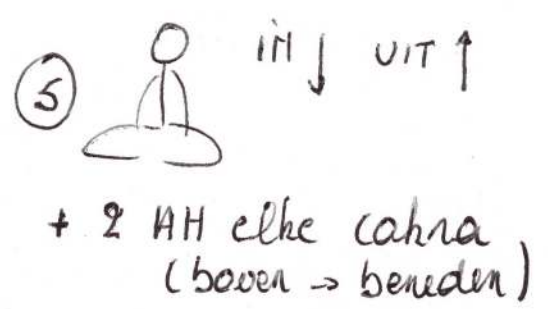 5 IN ↓ UIT ↑
+ 2 AH elke cahra
(boven → beneden)